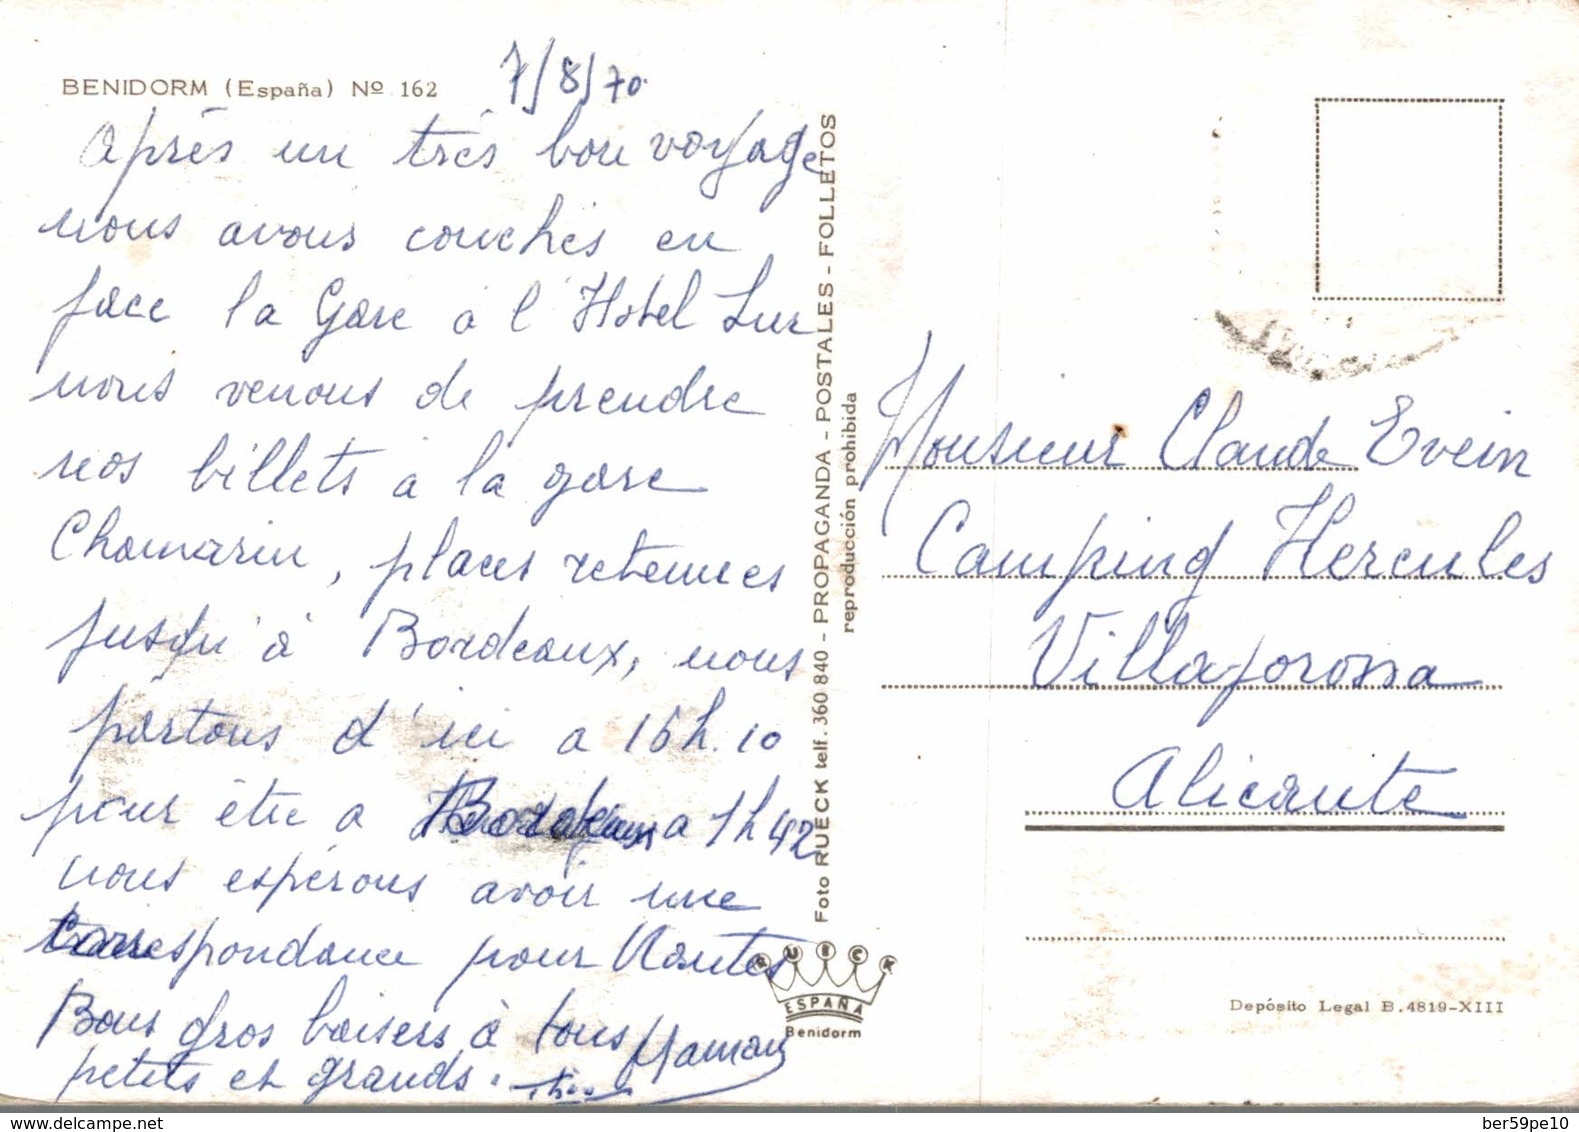 BENIDORM (España) Nº 162
7/8/70
Après un très bon voyage
nous avons couchés en
face la Gare à l'Hotel Sur
nous venons de prendre
nos billets a la gare
Chamarin, places retenues
jusqu'à Bordeaux, nous
partons d'ici a 16h.10
pour être a Bordeaux a 1h42
nous espérons avoir une
correspondance pour Nantes
Bons gros baisers à tous
petits et grands. Maman
Foto RUECK telf. 360 840 - PROPAGANDA - POSTALES - FOLLETOS
reproducción prohibida
RUECK
ESPAÑA
Benidorm
Monsieur Claude Evein
Camping Hercules
Villajorosa
Alicante
Depósito Legal B.4819-XIII
www.delcampe.net
ber59pe10